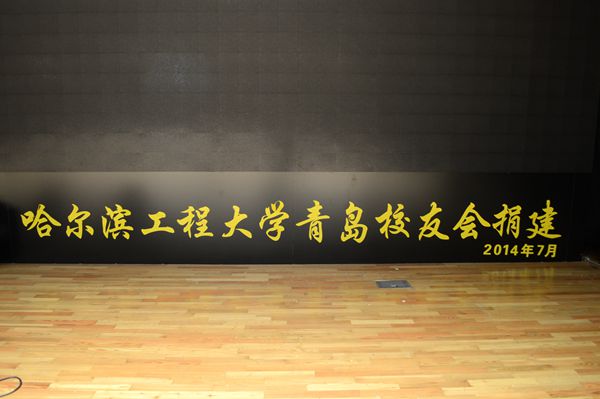 哈尔滨工程大学青岛校友会捐建
2014年7月